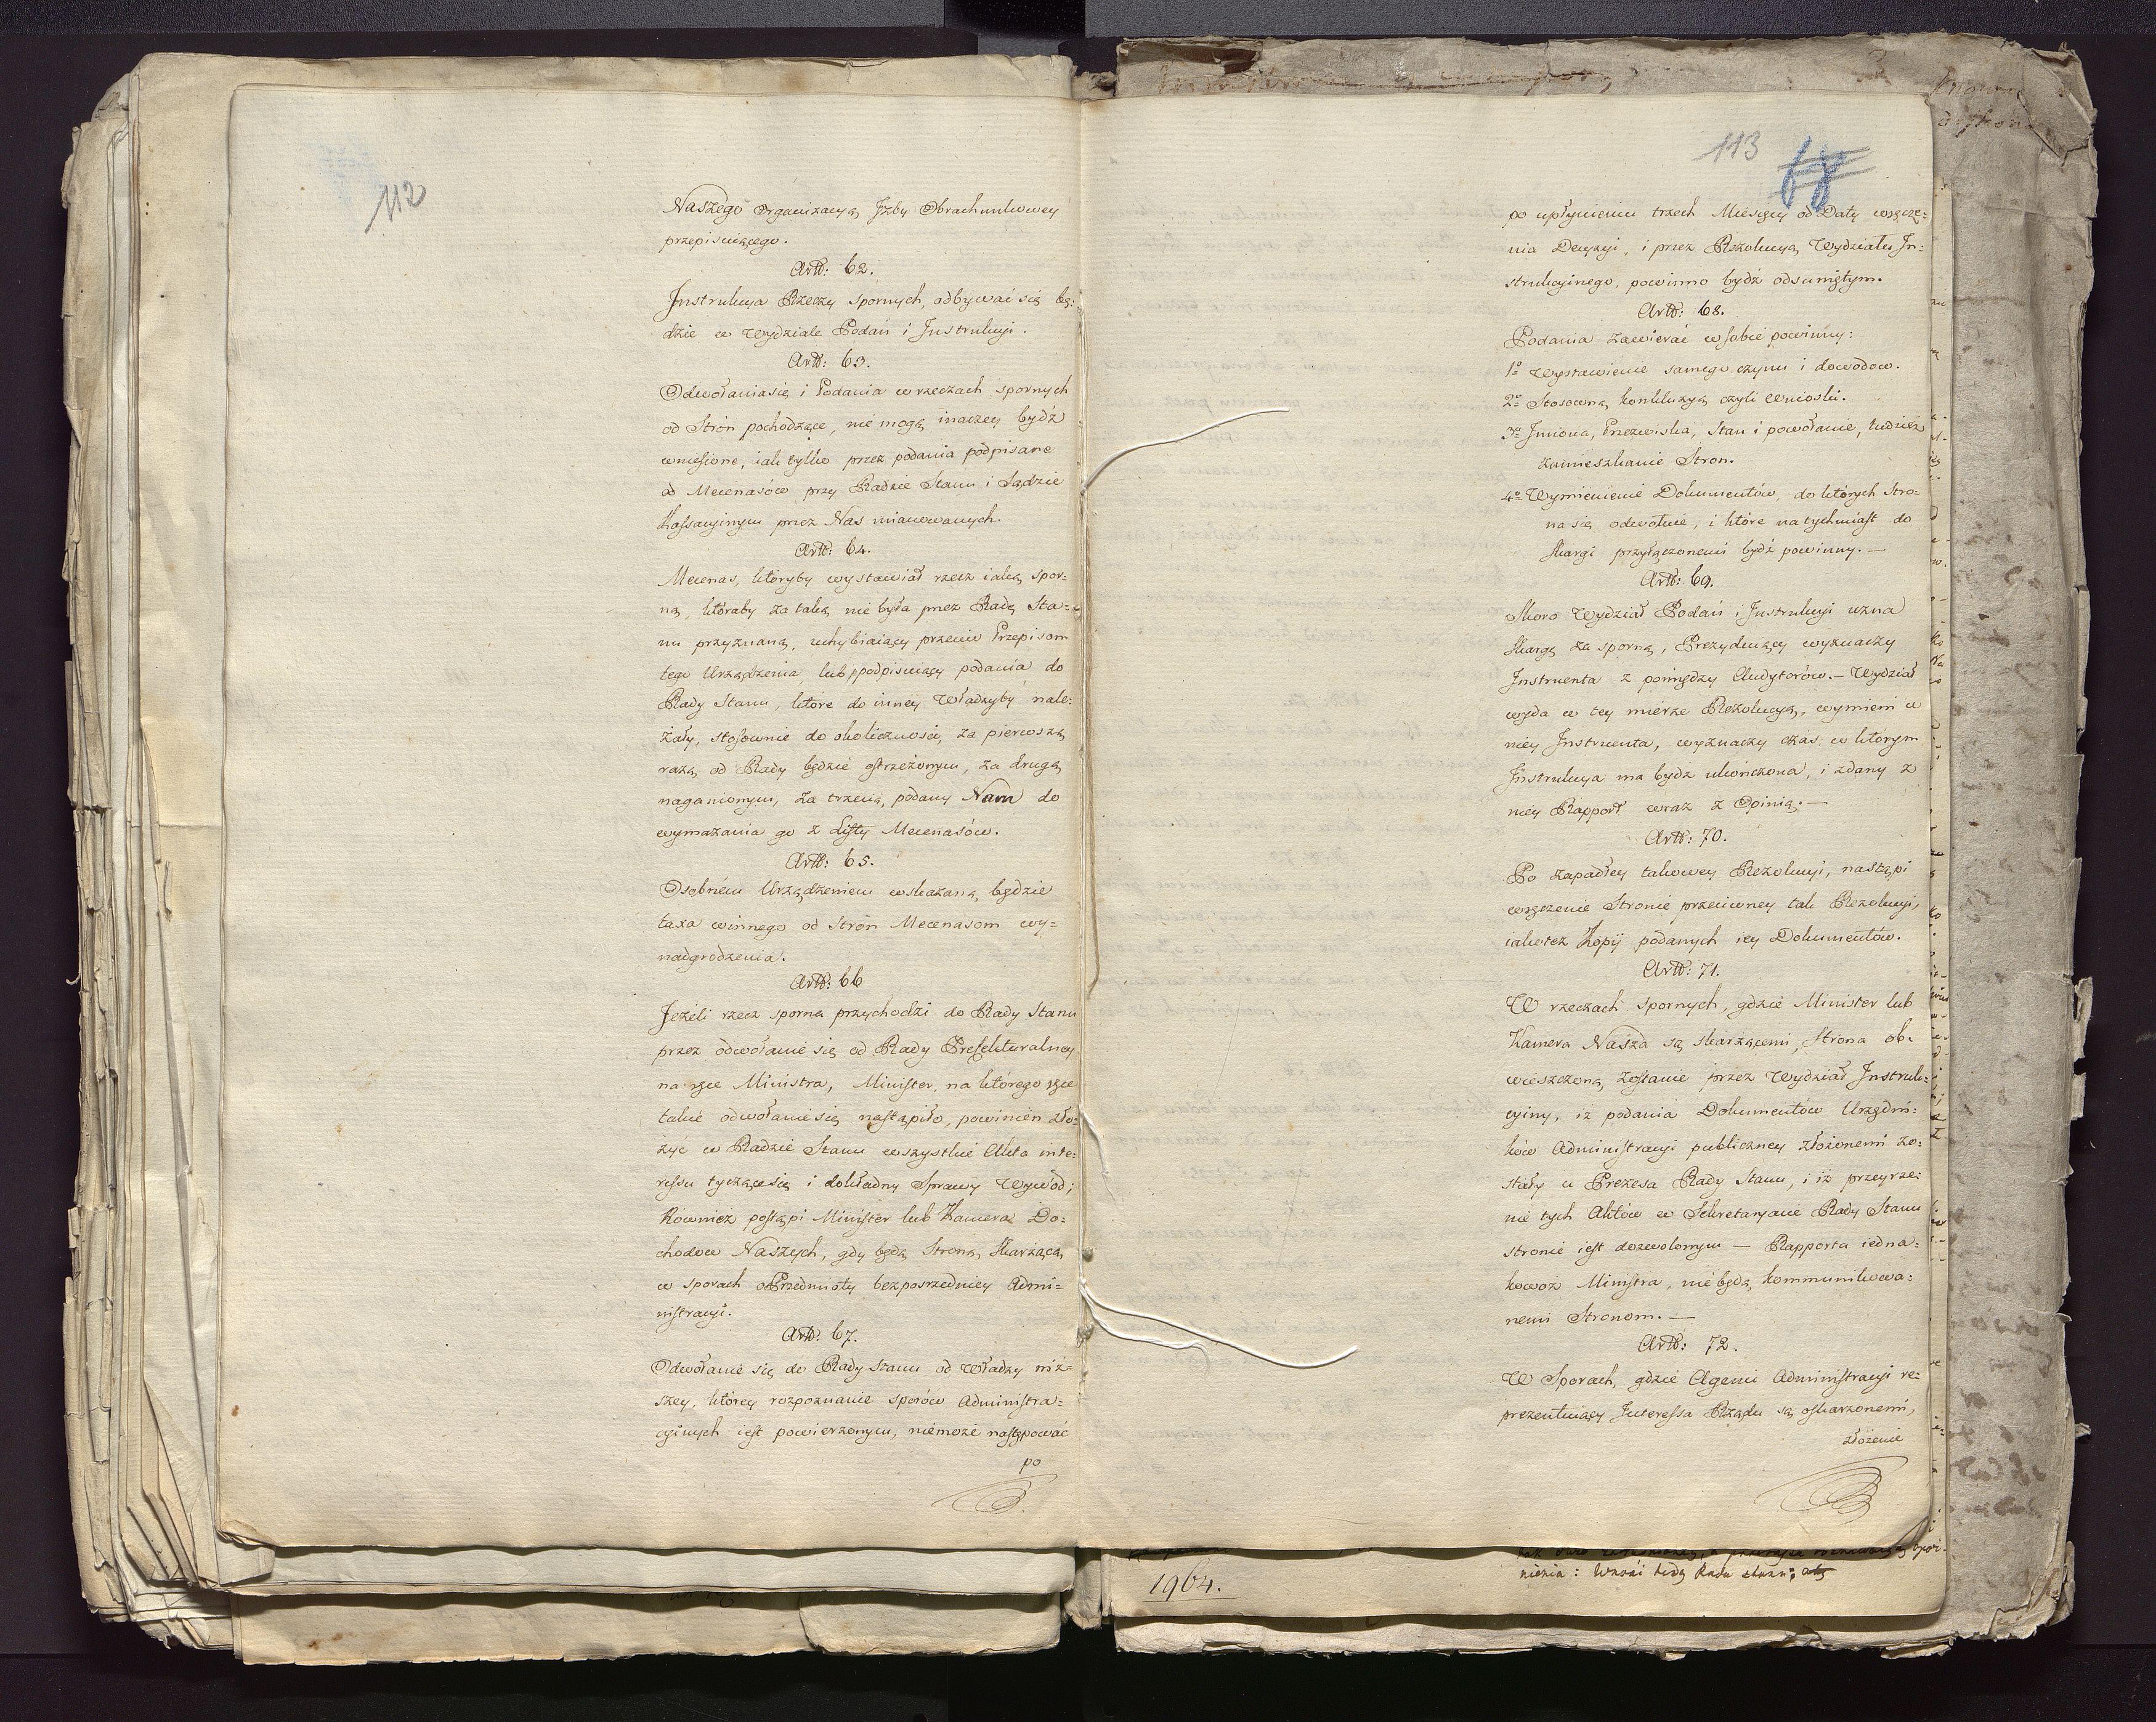 112
Naszego Organizacyą Jzby Obrachunkowey
przepisuiącego.
Artt: 62.
Jnstrukcya Rzeczy spornych, odbywać się bę:
dzie w Wydziale Podań i Jnstrukcyi.
Artt: 63.
Odwołania się i Podania w rzeczach spornych
od Stron pochodzące, nie mogą inaczey bydź
wniesione, iak tylko przez podania podpisane
od Mecenasów przy Radzie Stanu i Sądzie
Kassacyinym przez Nas mianowanych.
Artt: 64.
Mecenas, któryby wystawiał rzecz iaką spor-
ną, któraby za taką nie była przez Radę Sta=
nu przyznaną, uchybiaiący przeciw Przepisom
tego Urządzenia, lub podpisuiący podania do
Rady Stanu, które do inney Władzyby nale:
żały, stosownie do okoliczności, za pierwszą
razą od Rady będzie ostrzeżonym, za drugą
naganionym, za trzecią, podany Nam do
wymazania go z Listy Mecenasów.
Artt: 65.
Osobnem Urządzeniem wskazaną będzie
taxa winnego od Stron Mecenasom wy=
nadgrodzenia.
Artt: 66
Jeżeli rzecz sporna przychodzi do Rady Stanu
przez odwołanie się od Rady Prefekturalney
na ręce Ministra, Minister, na którego ręce
takie odwołanie się nastąpiło, powinien zło:
żyć w Radzie Stanu wszystkie Akta inte:
ressu tyczące się i dokładny Sprawy Wywód;
Również postąpi Minister lub Kamera Do:
chodów Naszych, gdy będą Stroną Skarżącą
w sporach o Przedmioty bezpośredniey Admi-
nistracyi.
Artt: 67.
Odwołanie się do Rady Stanu od Władzy niż=
szey, którey rozpoznanie sporów Administra=
cyinych iest powierzonym, niemoże następować
po
113
po upłynieniu trzech Miesięcy od Daty wręcze:
nia Decyzyi, i przez Rezolucyą Wydziału Jn:
strukcyinego, powinno bydź odsuniętym.
Artt: 68.
Podania zawierać w sobie powinny:
1o Wystawienie samego czynu i dowodow.
2o Stosowną konkluzyą czyli wnioski.
3o Jmiona, Przezwiska, Stan i powołanie, tudzież
zamieszkanie Stron.
4o Wymienienie Dokumentów, do których Stro-
na się odwołuie, i które natychmiast do
skargi przyłączonemi bydź powinny. —
Artt: 69.
Skoro Wydział Podań i Jnstrukcyi uzna
skargę za sporną, Prezyduiący wyznaczy
Jnstruenta z pomiędzy Audytorów. — Wydział
wyda w tey mierze Rezolucyą, wymieni w
niey Jnstruenta, wyznaczy czas, w którym
Jnstrukcya ma bydz ukończona, i zdany z
niey Rapport wraz z Opinią. —
Artt: 70.
Po zapadłey takowey Rezolucyi, nastąpi
wręczenie Stronie przeciwney tak Rezolucyi,
iakoteż Kopij podanych iey Dokumentów.
Artt: 71.
W rzeczach spornych, gdzie Minister lub
Kamera Nasza są skarżącemi, Strona ob-
wieszczoną zostanie przez Wydział Jnstruk:
cyiny, iż podania Dokumentów Urzędni:
ków Administracyi publiczney złożonemi zo:
stały u Prezesa Rady Stanu, i iż przeyrze:
nie tych Aktów w Sekretaryacie Rady Stanu
stronie iest dozwolonym — Rapporta iedna:
kowoż Ministra, nie będą kommunikowa:
nemi Stronom. —
Artt: 72.
W Sporach, gdzie Agenci Administracyi re:
prezentuiący Jnteressa Rządu są oskarzonemi,
złożenie
1964.
nienia: Wznosi tedy Rada stanu;